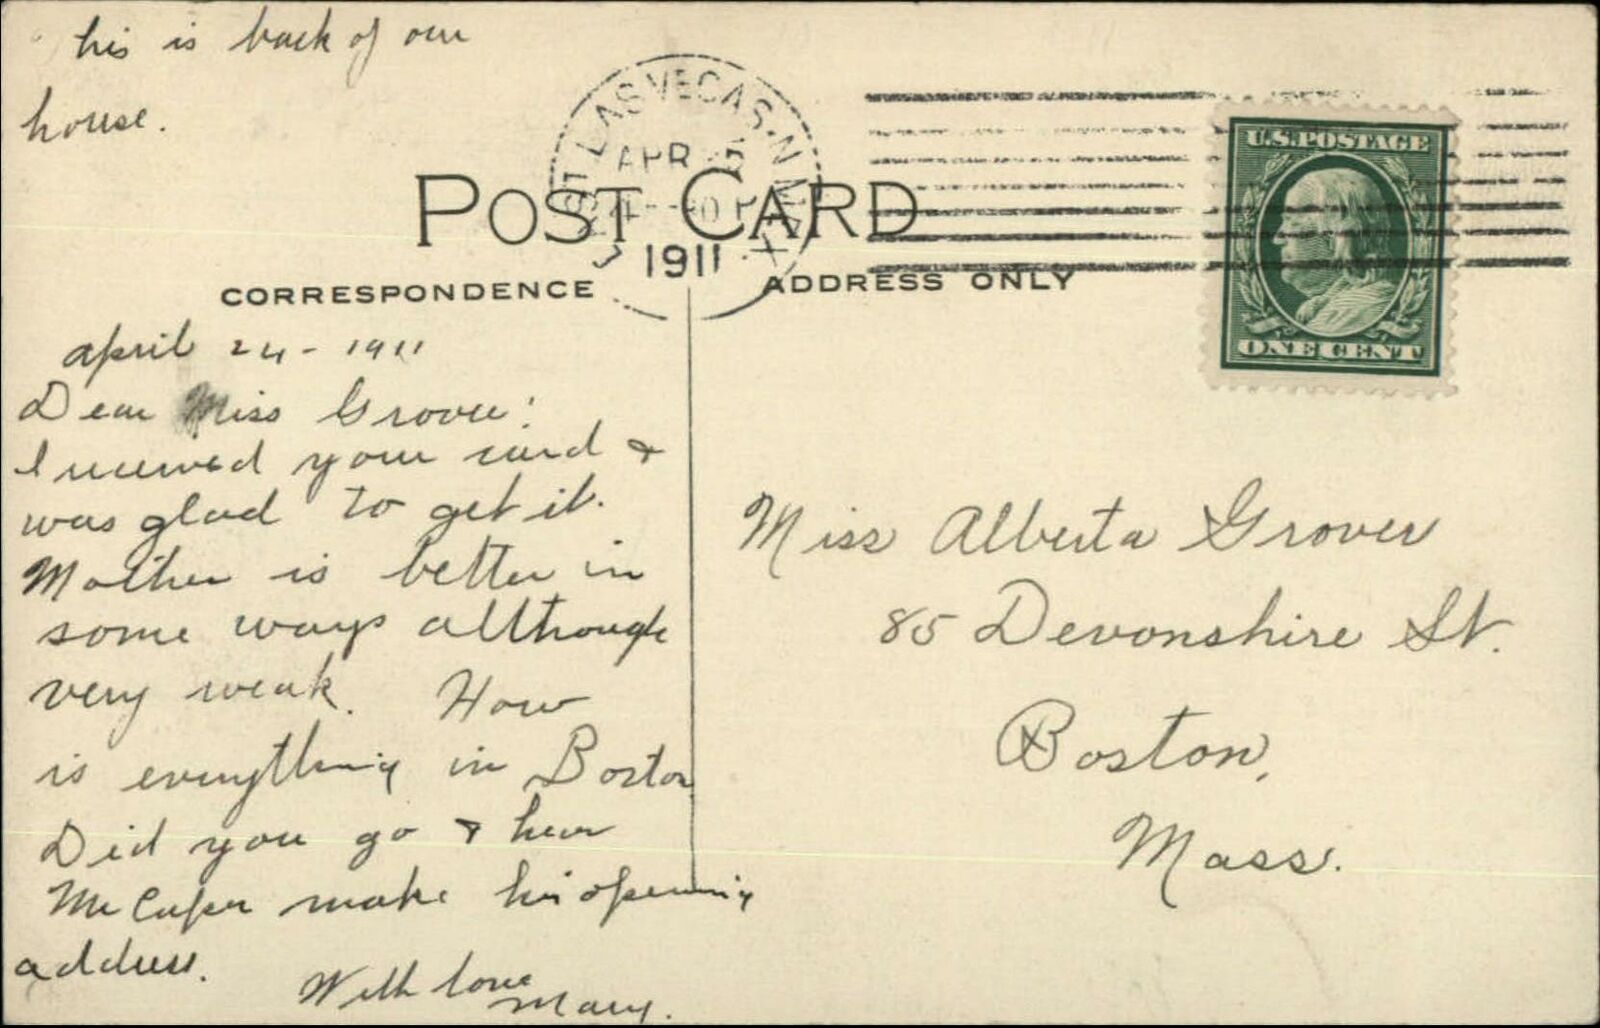 his is back of our
house.
EAST LAS VEGAS, N. MEX.
APR
1911
U.S. POSTAGE
ONE CENT
POST CARD
CORRESPONDENCE
ADDRESS ONLY
april 24 - 1911
Dear Miss Grover:
I received your card &
was glad to get it.
Mother is better in
some ways allthough
very weak. How
is everything in Boston
Did you go & hear
Mr make his opening
address.
With love
Mary.
Miss Alberta Grover
85 Devonshire St.
Boston,
Mass.